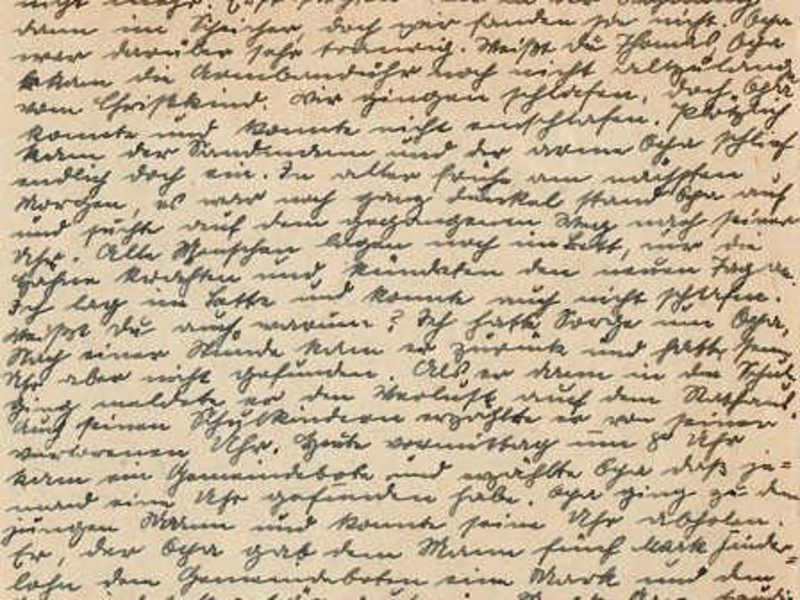 dann im Speicher, doch wir fanden sie nicht. Opa
war darüber sehr traurig. Weißt du Thomas Opa
bekam die Armbanduhr noch nicht allzulange
vom Christkind. Wir gingen schlafen, doch Opa
konnte und konnte nicht einschlafen. Plötzlich
kam der Sandmann und der arme Opa schlief
endlich doch ein. In aller Frühe am nächsten
Morgen, es war noch ganz dunkel stand Opa auf
und sucht auf dem gegangenen Weg nach seiner
Uhr. Alle Menschen lagen noch im Bett, nur die
Hähne krähten und kündeten den neuen Tag an.
Ich lag im Bette und konnte auch nicht schlafen.
Weißt du auch warum? Ich hatte Sorge um Opa.
Nach einer Stunde kam er zurück und hatte seine
Uhr aber nicht gefunden. Als er dann in die Schule
ging meldete er den Verlust auf dem Rathaus.
Auch seinen Schulkindern erzählte er von seiner
verlorenen Uhr. Heute vormittag um 8 Uhr
kam ein Gemeindebote und erzählte Opa daß je=
mand eine Uhr gefunden habe. Opa ging zu dem
jungen Mann und konnte seine Uhr abholen.
Er, der Opa gab dem Mann fünf Mark Finder=
lohn dem Gemeindeboten eine Mark und dem